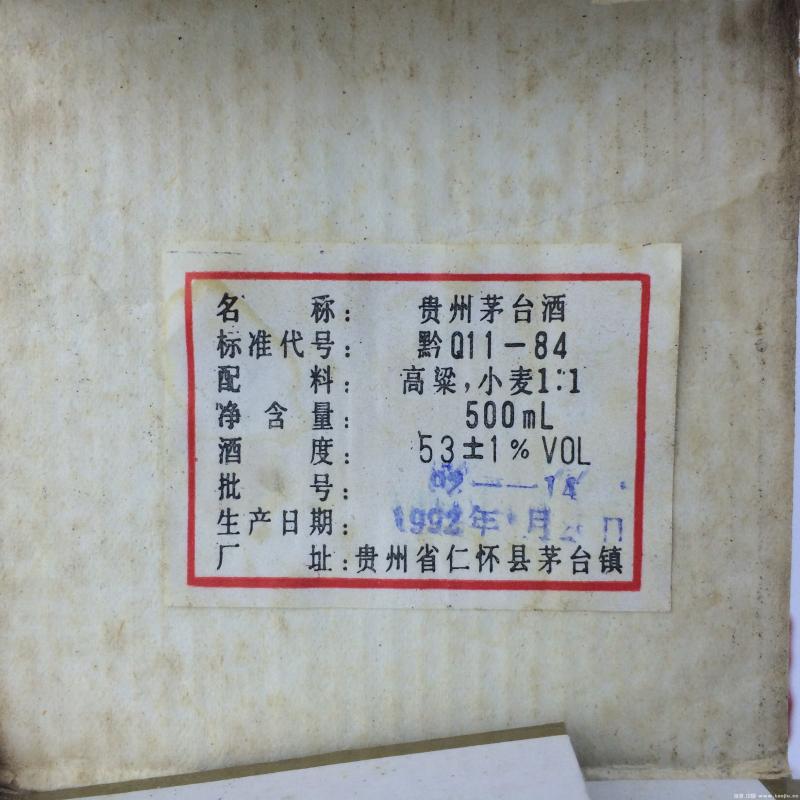 名称：贵州茅台酒
标准代号：黔Q11-84
配料：高粱,小麦1:1
净含量：500mL
酒度：53±1%VOL
批号：
生产日期：1992年 月 日
厂址：贵州省仁怀县茅台镇